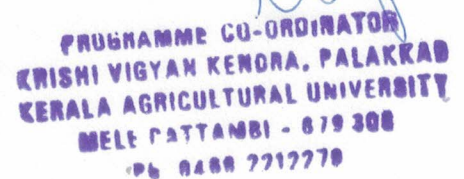 PROGRAMME CO-ORDINATOR
KRISHI VIGYAN KENDRA, PALAKKAD
KERALA AGRICULTURAL UNIVERSITY
MELE PATTAMBI - 679 306
Ph 0466 2212279